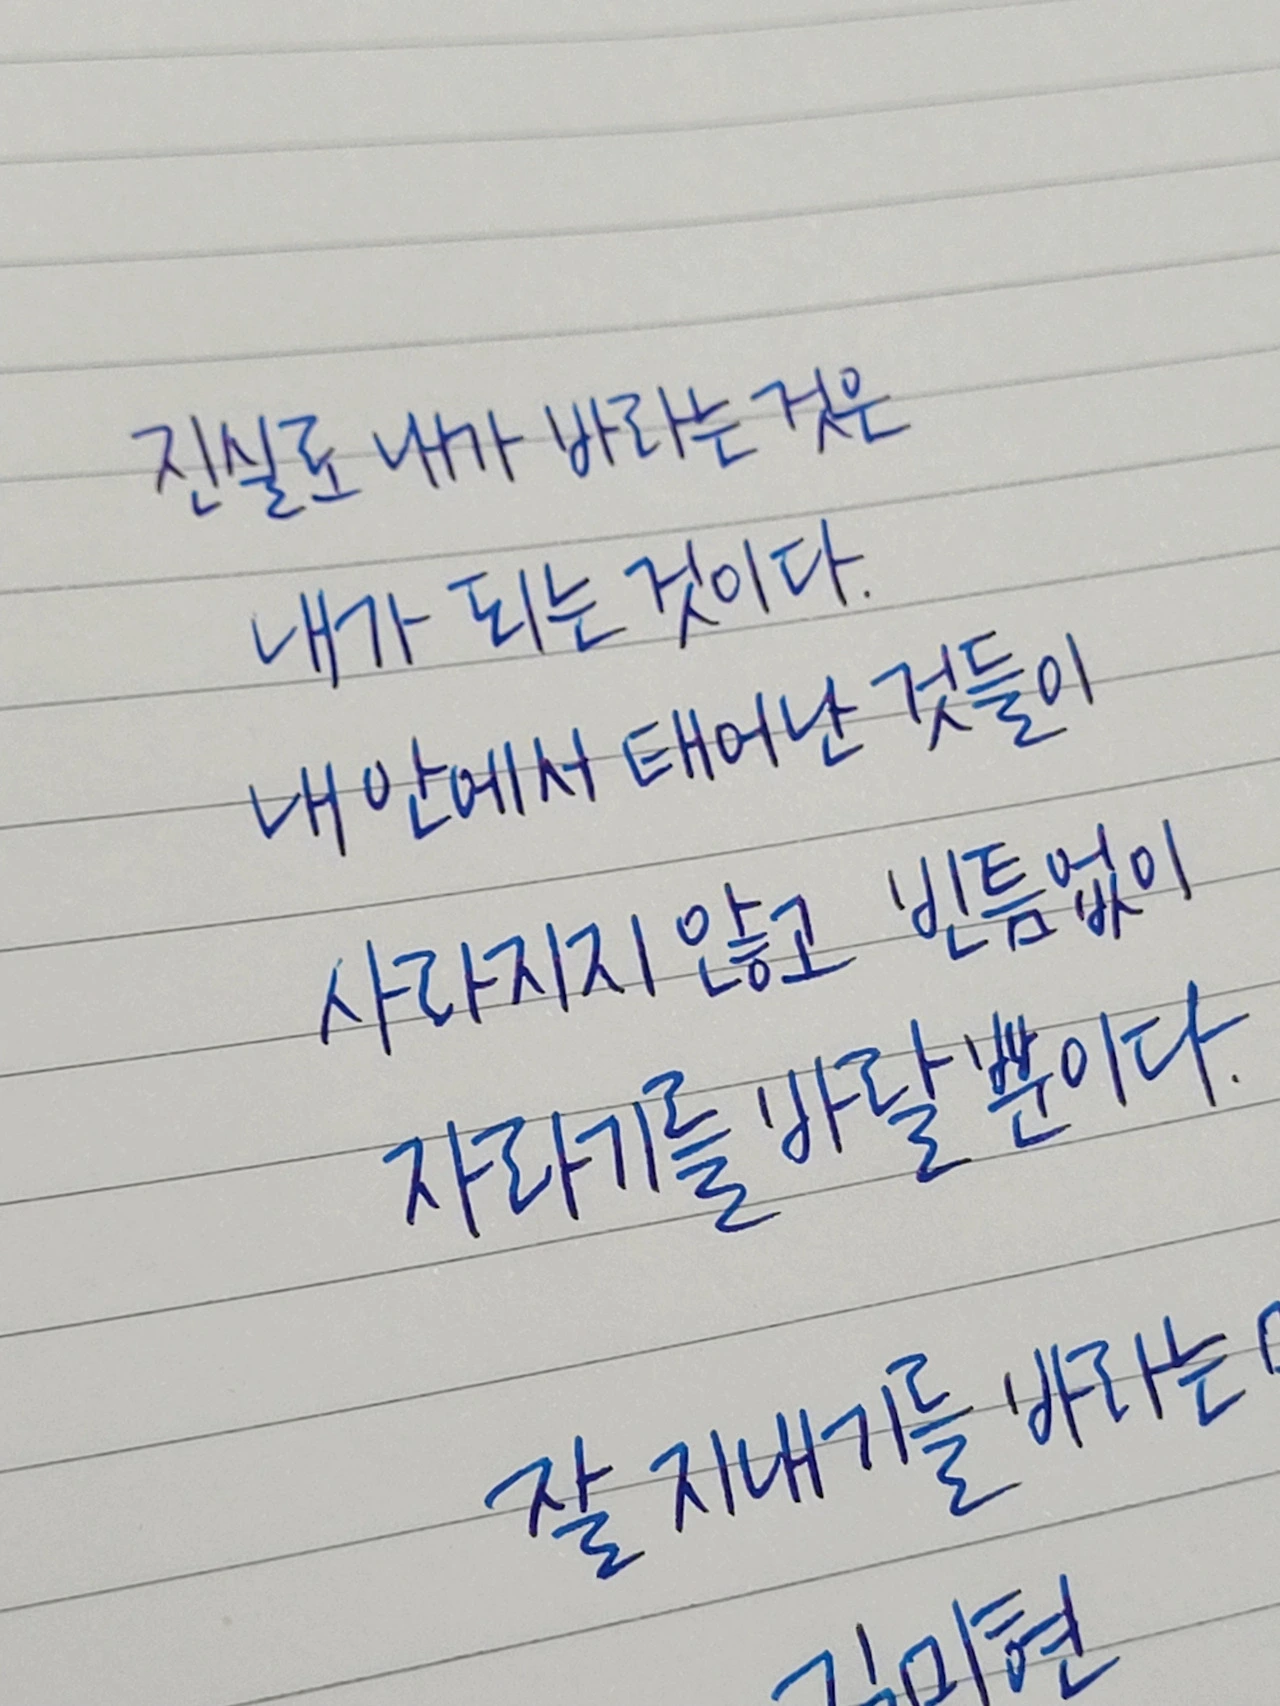 진실로 내가 바라는 것은
내가 되는 것이다.
내 안에서 태어난 것들이
사라지지 않고 빈틈없이
자라기를 바랄 뿐이다.
잘 지내기를 바라는
김미현